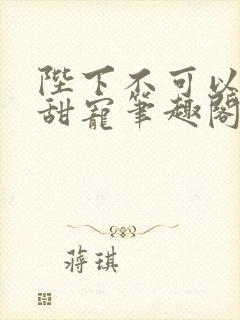 陛下不可以
甜宠笔趣阁
蒋琪